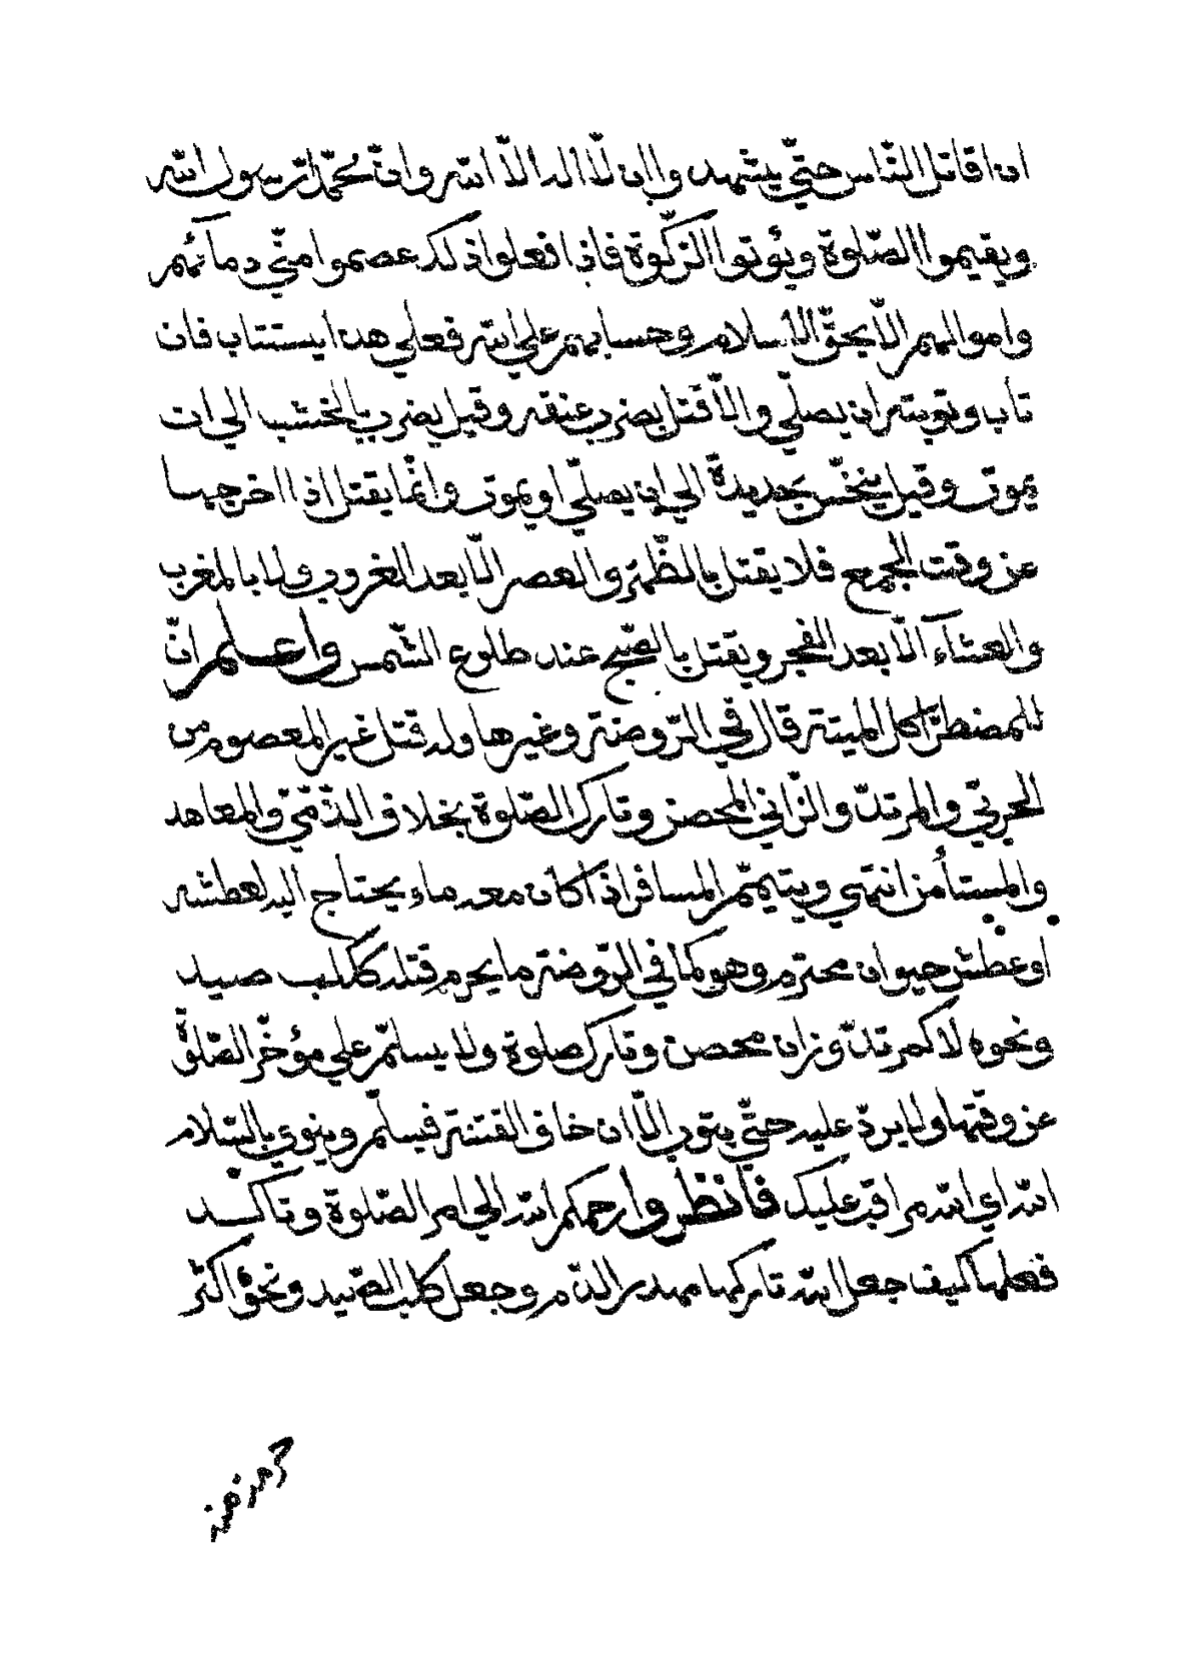 ان اقاتل النّاس حتّي يشهد واان لّا اله الّا الله وانّ محمّدا رسول الله
ويقيموا الصّلوة ويؤتوا الزّكوة فاذا فعلوا ذلك عصموا منّي دمائهم
واموالهم الّا بحقّ الاسلام وحسابهم علي الله فعلي هذا يستتاب فان
تاب وتوبته ان يصلّي والّا قتل بضرب عنقه وقيل يضرب بالخشب الي ان
يموت وقيل ينخّس بحديدة الي ان يصلّي او يموت وانّما يقتل اذا اخرجها
عن وقت الجمع فلا يقتل بالظّهر والعصر الّا بعد الغروب ولا بالمغرب
والعشآء الّا بعد الفجر ويقتل بالصّبح عند طلوع الشّمس واعلم انّ
للمضطرّ اكل الميتة قال في الرّوضة وغيرها وله قتل غير المعصوم من
الحربيّ والمرتدّ والزّاني المحصن وتارك الصّلوة بخلاف الذّمّيّ والمعاهد
والمستأمن انتهي ويتيمّم المسافر اذا كان معه ماء يحتاج اليه لعطشه
او عطش حيوان محترم وهو كما في الرّوضة ما يحرم قتله ككلب صيد
ونحوه لا كمرتدّ وزان محصن وتارك صلوة ولا يسلّم علي مؤخّر الصّلوة
عن وقتها ولا يردّ عليه حتّي يتوب الّا ان خاف الفتنة فيسلّم وينوي بالسّلام
الله اي الله مراقب عليك فانظروا رحمكم الله الي امر الصّلوة وتاكد
فعلها كيف جعل الله تاركها مهدر الدّم وجعل كلب الصّيد ونحوه اكثر